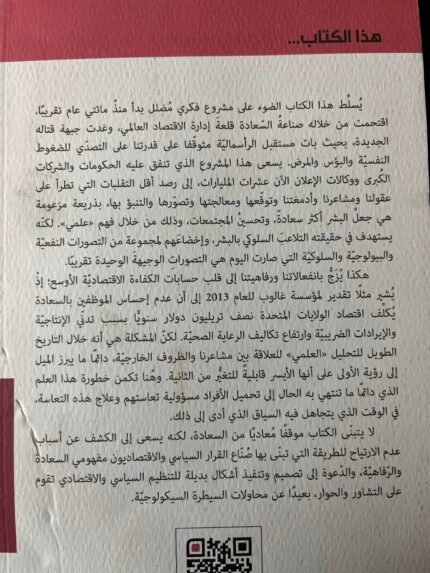 هذا الكتاب...
يُسلِّط هذا الكتاب الضوء على مشروع فكري مُضلل بدأ منذُ مائتي عام تقريبًا،
اقتحمت من خلاله صناعةُ السّعادة قلعةَ إدارة الاقتصاد العالمي، وغدت جبهة قتاله
الجديدة، بحيث بات مستقبل الرأسماليّة متوقفًا على قدرتنا على التصدّي للضغوط
النفسيّة والبؤس والمرض. يسعى هذا المشروع الذي تنفق عليه الحكومات والشركات
الكُبرى ووكالات الإعلان الآن عشرات المليارات، إلى رصد أقل التقلبات التي تطرأ على
عقولنا ومشاعرنا وأدمغتنا وتوقّعها ومعالجتها وتصوّرها والتنبؤ بها، بذريعة مزعومة
هي جعلُ البشر أكثر سعادةً، وتحسينُ المجتمعات، وذلك من خلال فهم «علمي». لكنّه
يستهدف في حقيقته التلاعبَ السلوكي بالبشر، وإخضاعَهم لمجموعة من التصورات النفعيّة
والبيولوجيّة والسلوكيّة التي صارت اليوم هي التصورات الوجيهة الوحيدة تقريبًا.
هكذا يُزَجُّ بانفعالاتنا ورفاهيتنا إلى قلب حسابات الكفاءة الاقتصاديّة الأوسع؛ إذْ
يُشير مثلًا تقدير لمؤسسة غالوب للعام 2013 إلى أن عدم إحساس الموظفين بالسعادة
يُكلّف اقتصاد الولايات المتحدة نصف تريليون دولار سنويًّا بسبب تدنّي الإنتاجيّة
والإيرادات الضريبيّة وارتفاع تكاليف الرعاية الصحيّة. لكنّ المشكلة هي أنه خلال التاريخ
الطويل للتحليل «العلمي» للعلاقة بين مشاعرنا والظروف الخارجيّة، دائمًا ما يبرز الميل
إلى رؤية الأولى على أنها الأيسر قابليةً للتغيُّر من الثانية. وهُنا تكمن خطورة هذا العلم
الذي دائمًا ما تنتهي به الحال إلى تحميل الأفراد مسؤولية تعاستهم وعلاج هذه التعاسة،
في الوقت الذي يتجاهل فيه السياق الذي أدى إلى ذلك.
لا يتبنّى الكتاب موقفًا مُعاديًا من السعادة، لكنه يسعى إلى الكشف عن أسباب
عدم الارتياح للطريقة التي تبنّى بها صُنّاع القرار السياسي والاقتصاديون مفهومي السعادة
والرّفاهيّة، والدّعوة إلى تصميم وتنفيذ أشكال بديلة للتنظيم السياسي والاقتصادي تقوم
على التشاور والحوار، بعيدًا عن محاولات السيطرة السيكولوجيّة.